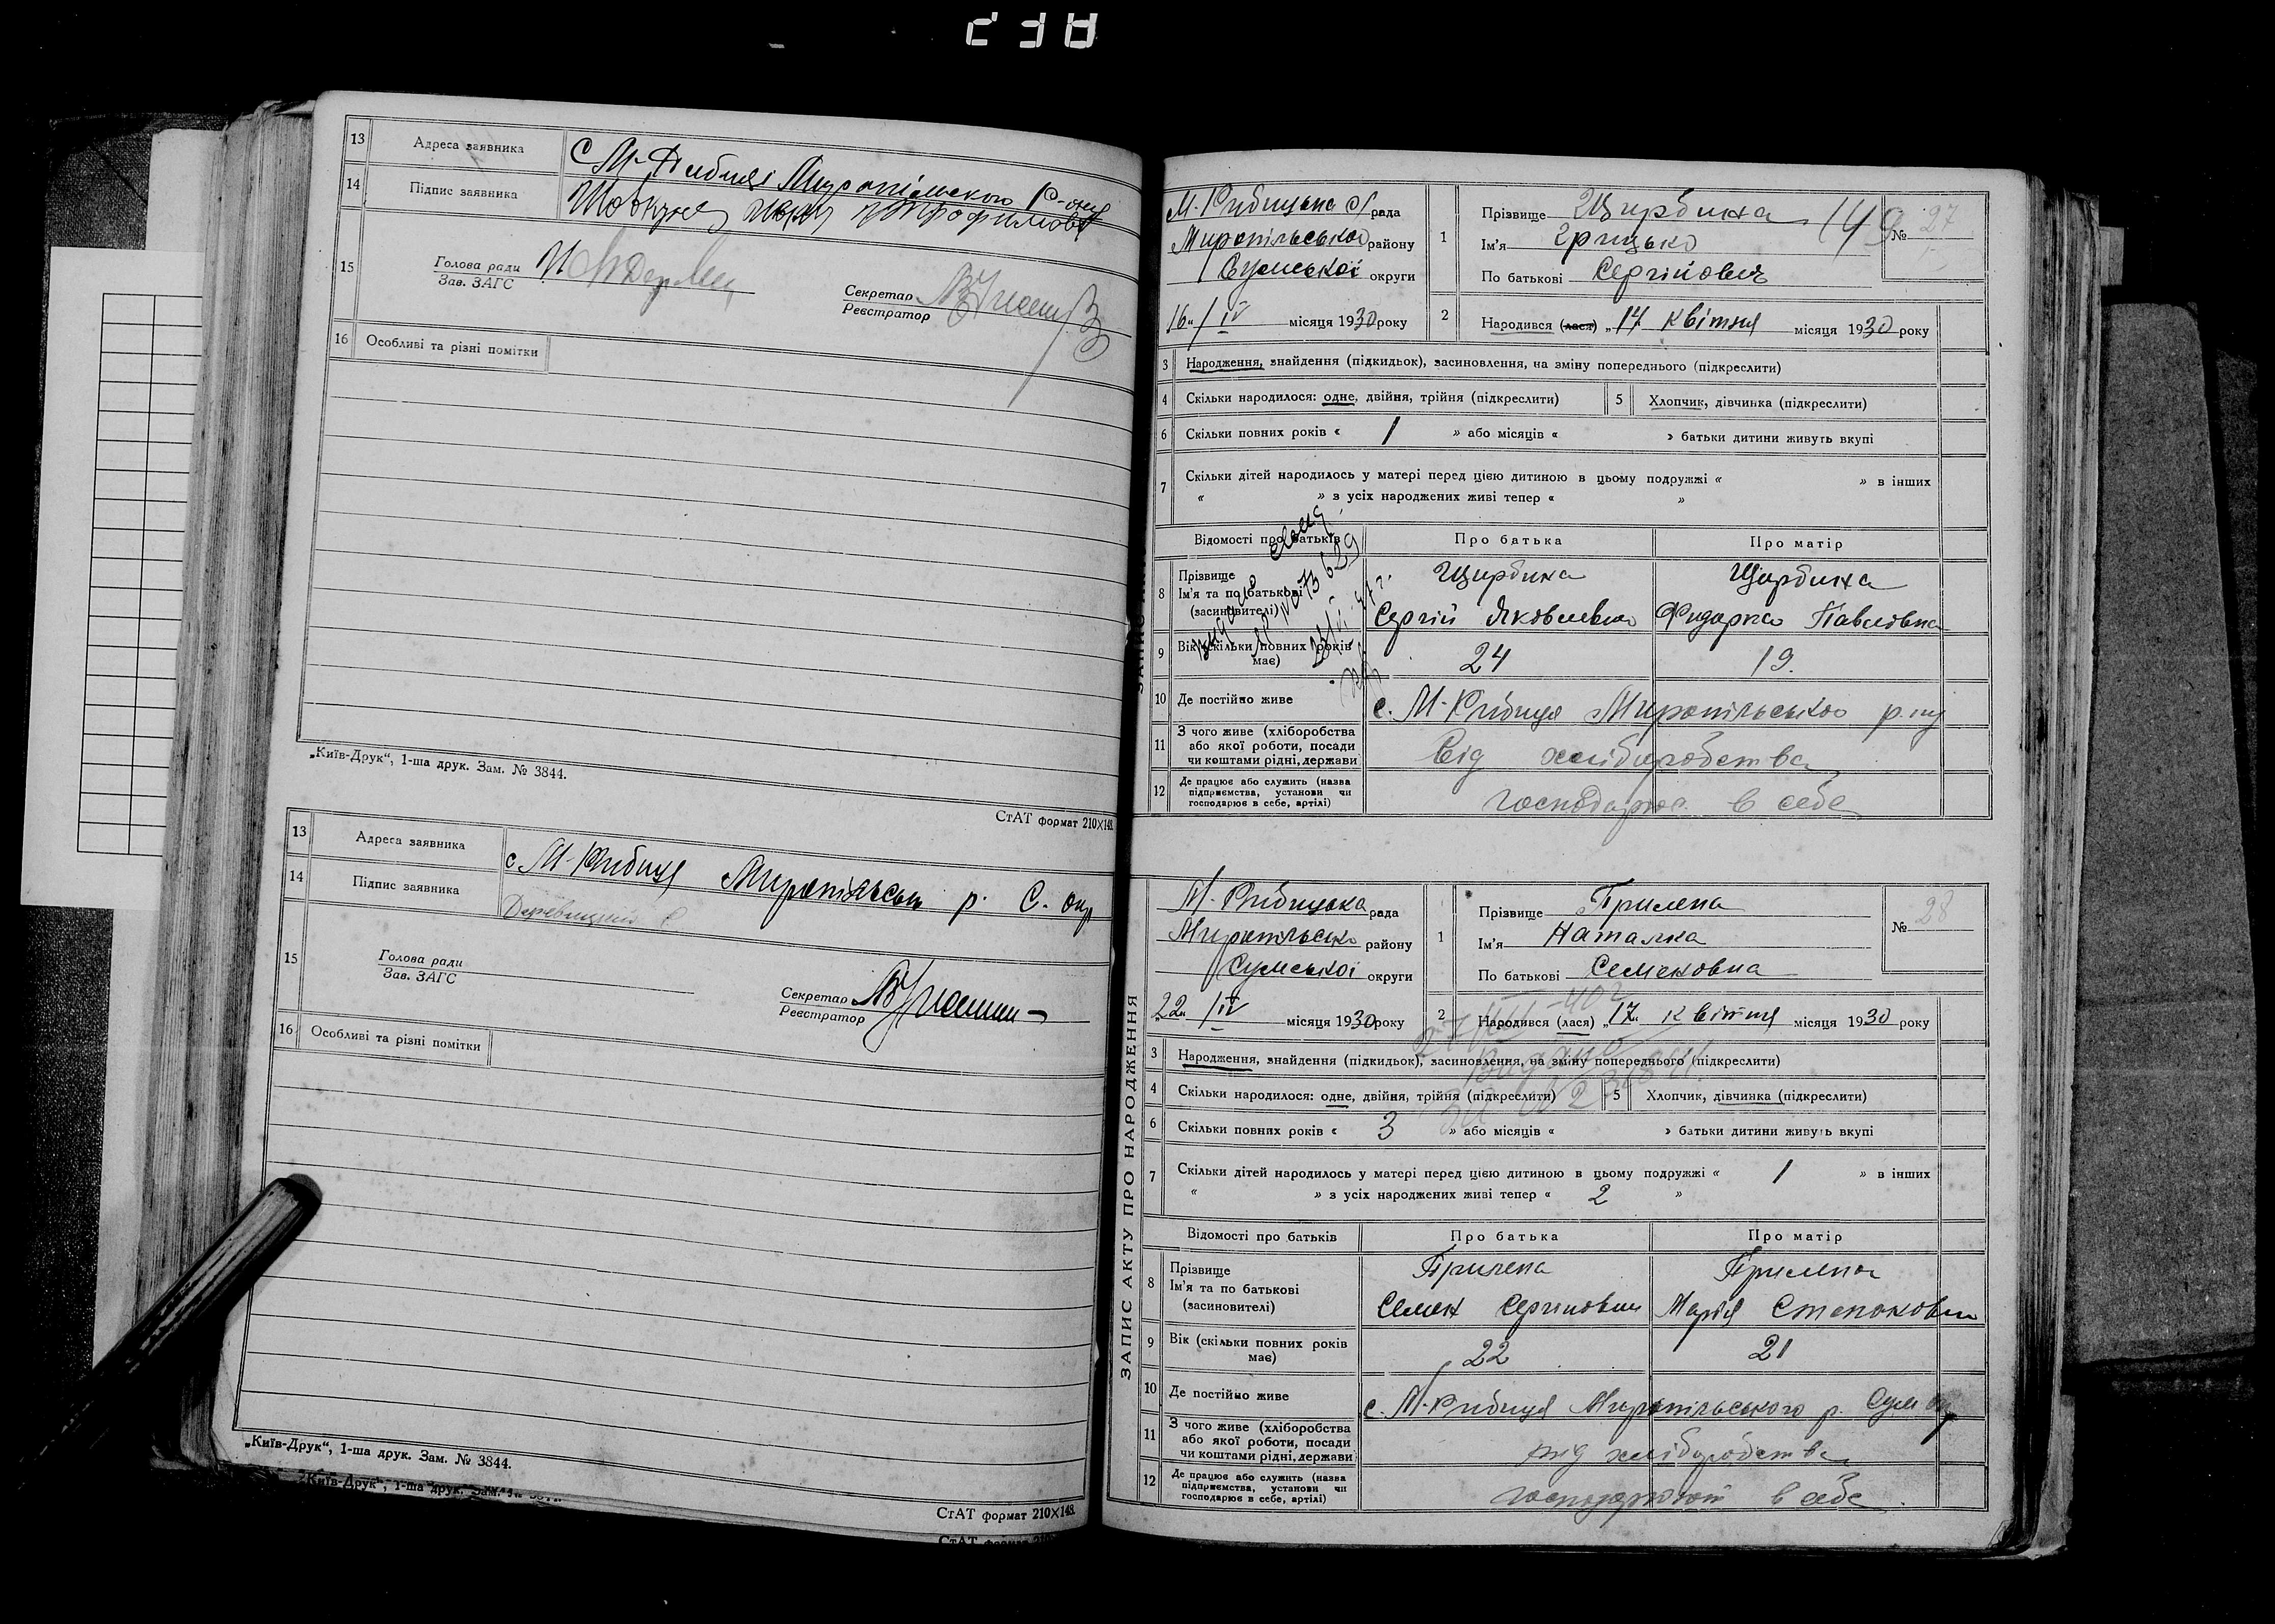 238
13 Адреса заявника С М-Рибиці Миропільського Р-ону
14 Підпис заявника
15 Голова ради
Зав. ЗАГС
Секретар
Реєстратор
16 Особливі та різні помітки
„Київ-Друк“, 1-ша друк. Зам. № 3844.
СтАТ формат 210×148.
13 Адреса заявника с М-Рибиця Миропільськ р. С. окр
14 Підпис заявника
15 Голова ради
Зав. ЗАГС
Секретар
Реєстратор
16 Особливі та різні помітки
„Київ-Друк“, 1-ша друк. Зам. № 3844.
СтАТ формат 210×148.
М-Рибицька с/рада
Миропільського району
Сумської округи
16 / IV місяця 1930 року
1 Прізвище Щирбина 149 № 27
Ім'я Грицько
По батькові Сергійович
2 Народився (лася) „14 квітня місяця 1930 року
3 Народження, знайдення (підкидьок), засиновлення, на зміну попереднього (підкреслити)
4 Скільки народилося: одне, двійня, трійня (підкреслити) 5 Хлопчик, дівчинка (підкреслити)
6 Скільки повних років « 1 » або місяців « » батьки дитини живуть вкупі
7 Скільки дітей народилось у матері перед цією дитиною в цьому подружжі « » в інших
« » з усіх народжених живі тепер « »
Відомості про батьків Про батька Про матір
8 Прізвище Щирбина Щирбина
Ім'я та по батькові
(засиновителі) Сергій Яковлевич Федорка Павловна
9 Вік (скільки повних років має) 24 19.
10 Де постійно живе с. М-Рибиця Миропільського р-ну
11 З чого живе (хліборобства або якої роботи, посади чи коштами рідні, держави Від хліборобства
12 Де працює або служить (назва підприємства, установи чи господарює в себе, артілі) господарює в себе
ЗАПИС АКТУ ПРО НАРОДЖЕННЯ
М-Рибицька рада
Миропільськ району
Сумської округи
„22 / IV місяця 1930 року
1 Прізвище Прилепа № 28
Ім'я Наталка
По батькові Семеновна
2 Народився (лася) „17 квітня місяця 1930 року
3 Народження, знайдення (підкидьок), засиновлення, на зміну попереднього (підкреслити)
4 Скільки народилося: одне, двійня, трійня (підкреслити) 5 Хлопчик, дівчинка (підкреслити)
6 Скільки повних років « 3 » або місяців « » батьки дитини живуть вкупі
7 Скільки дітей народилось у матері перед цією дитиною в цьому подружжі « 1 » в інших
« » з усіх народжених живі тепер « 2 »
Відомості про батьків Про батька Про матір
8 Прізвище Прилепа Прилепа
Ім'я та по батькові
(засиновителі) Семен Сергійович Марія Степановна
9 Вік (скільки повних років має) 22 21
10 Де постійно живе с. М-Рибиця Миропільського р. Сум окр
11 З чого живе (хліборобства або якої роботи, посади чи коштами рідні, держави від хліборобства
12 Де працює або служить (назва підприємства, установи чи господарює в себе, артілі) господарюют в себе